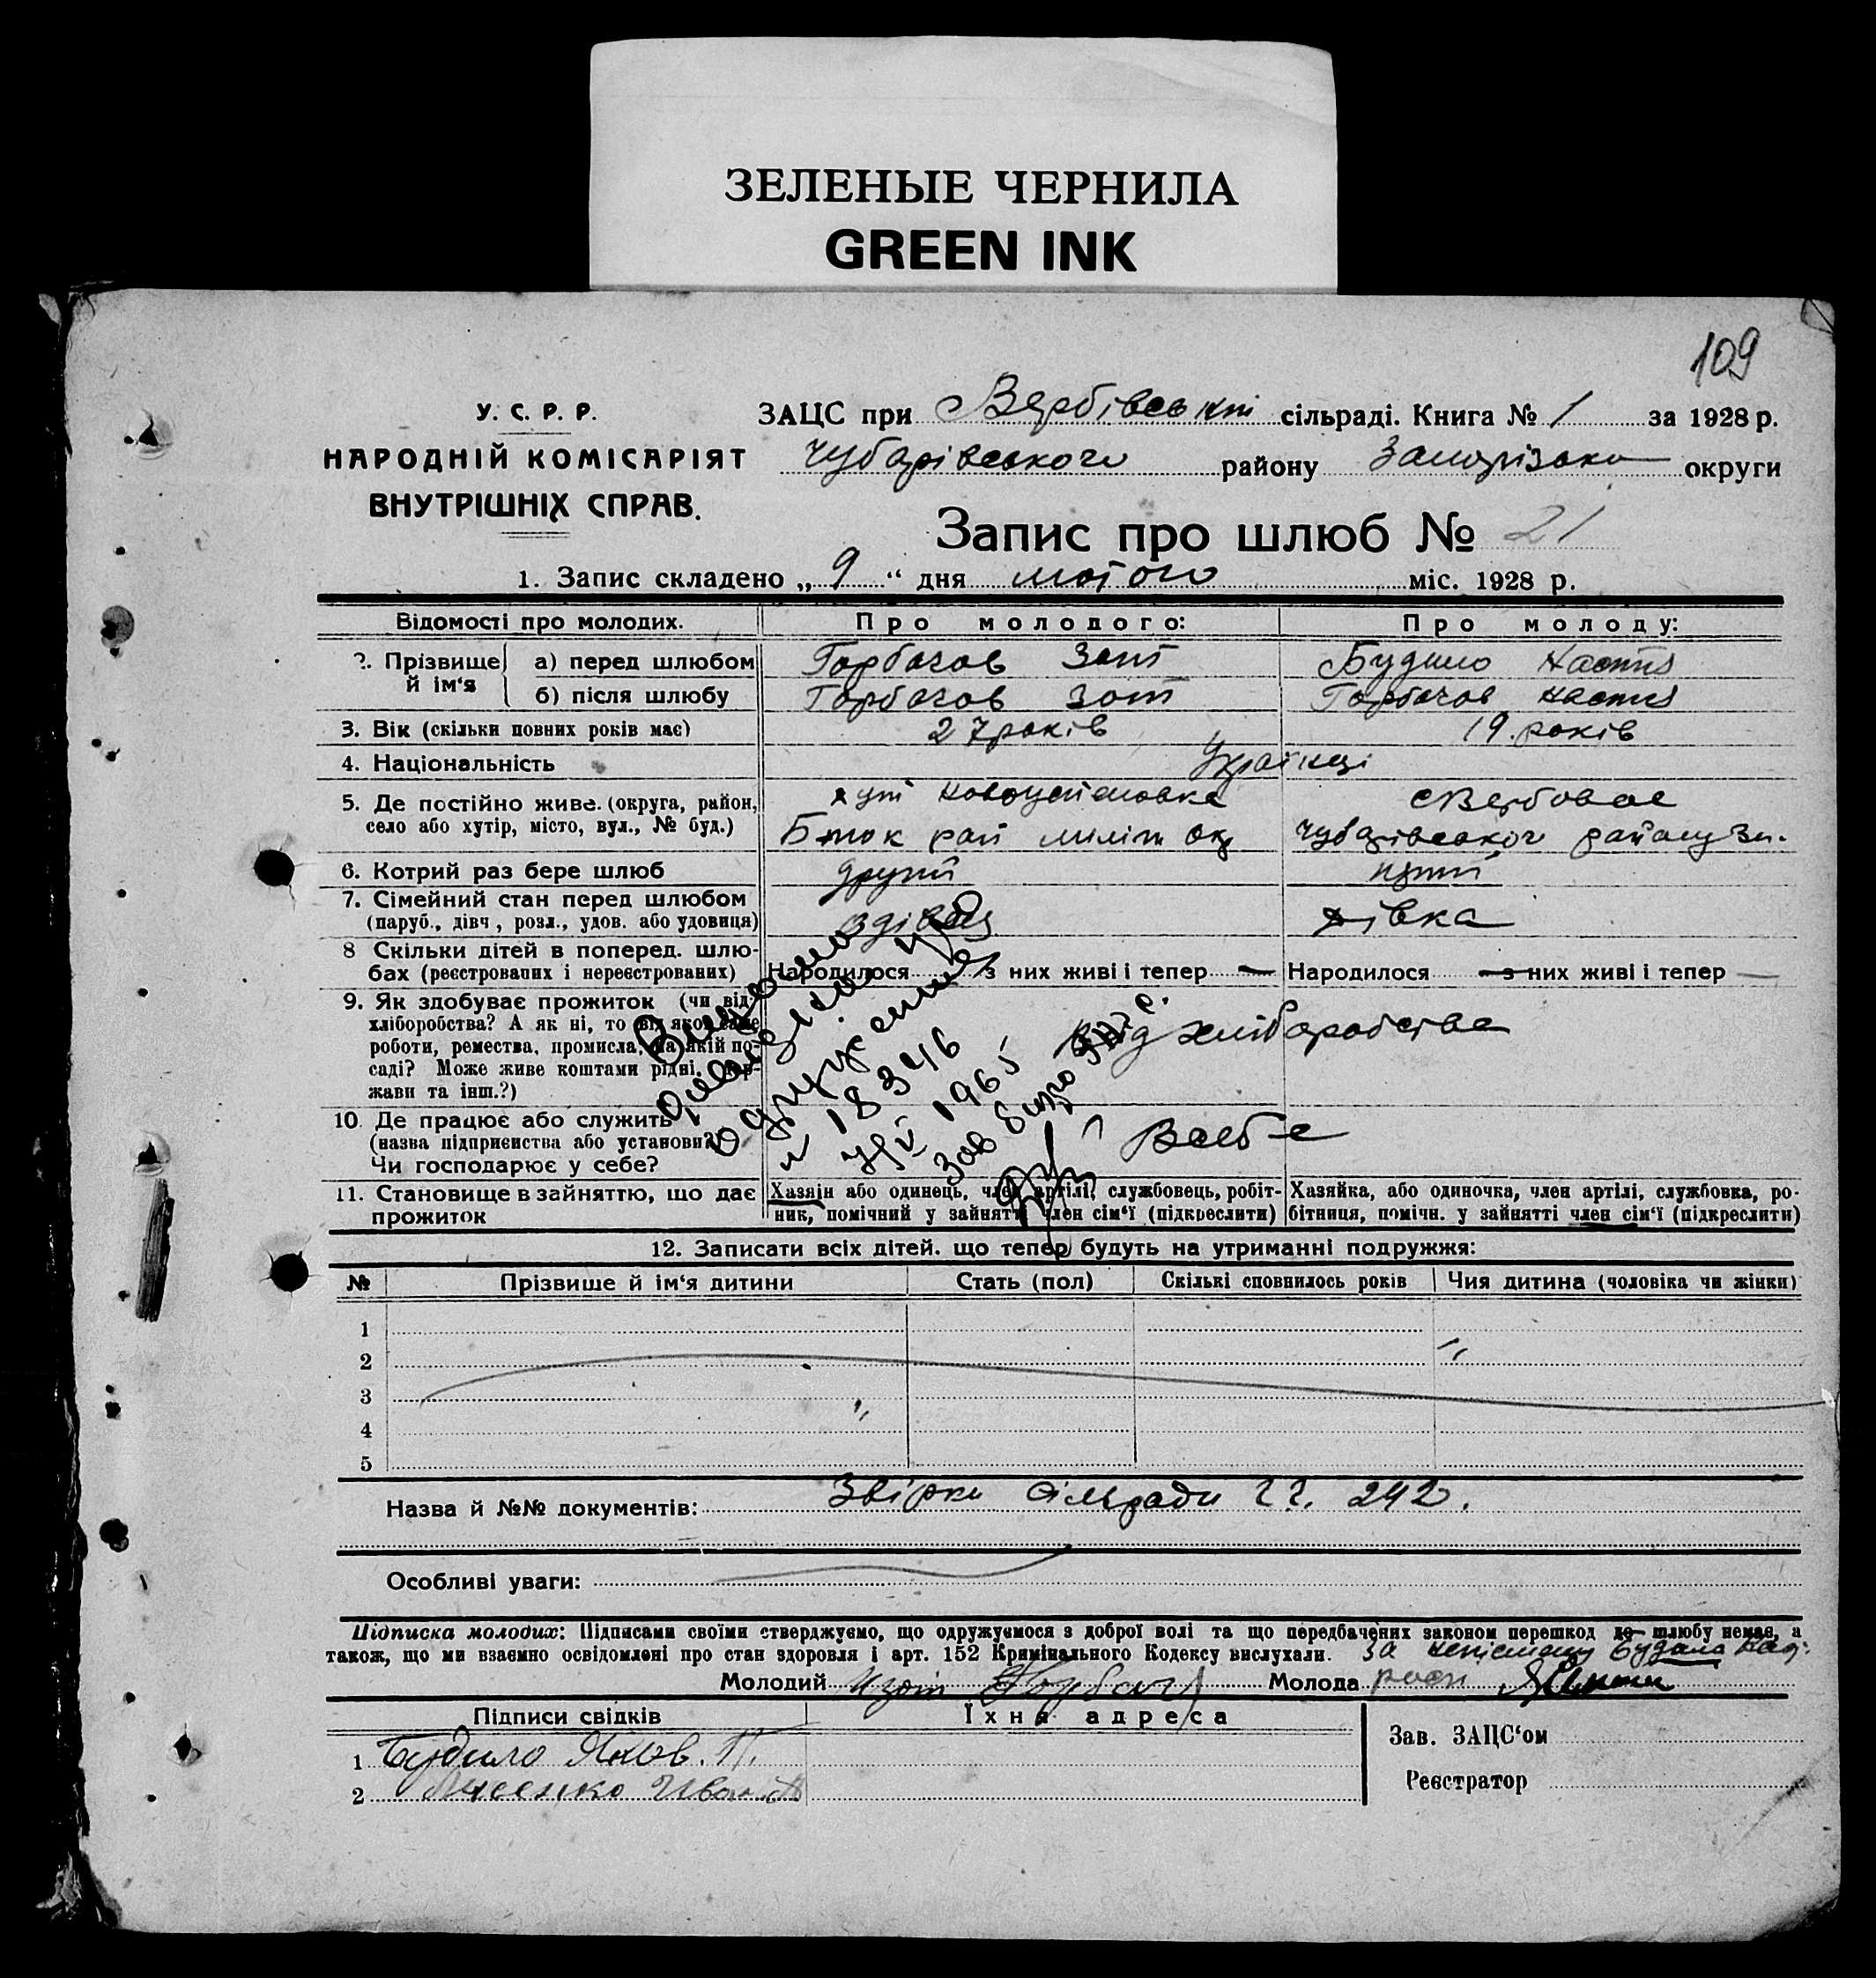 ЗЕЛЕНЫЕ ЧЕРНИЛА
GREEN INK
109
У. С. Р. Р.
НАРОДНІЙ КОМІСАРІЯТ
ВНУТРІШНІХ СПРАВ.
ЗАЦС при Вербівській сільраді. Книга № 1 за 1928 р.
Чубарівського району Запорізько округи
Запис про шлюб № 21
1. Запис складено „ 9 “ дня лютого міс. 1928 р.
Відомості про молодих. Про молодого: Про молоду:
2. Прізвище й ім‘я а) перед шлюбом Горбачов Зот Будило Настя
б) після шлюбу Горбачов Зот Горбачов Настя
3. Вік (скільки повних років має) 27 років 19. років
4. Національність Українці
5. Де постійно живе. (округа, район, село або хутір, місто, вул., № буд.) хут Б ток рай меліт ок с Вербовое Чубарівського району Зп.
6. Котрий раз бере шлюб другий
7. Сімейний стан перед шлюбом (паруб., дівч, розл., удов. або удовиця) вдівец дівка
8 Скільки дітей в поперед. шлюбах (реєстрованих і нереєстрованих) Народилося з них живі і тепер — Народилося — з них живі і тепер —
9. Як здобуває прожиток (чи від хліборобства? А як ні, то від якої саме роботи, ремества, промисла, на якій посаді? Може живе коштами рідні, держави та інш.?) від хліборобства
10. Де працює або служить (назва підприємства або установи? Чи господарює у себе? В себе
Видано
о
одружении
№ 18346
1965
Зав бюро ЗАГС.
11. Становище в зайняттю, що дає прожиток Хазяін або одинець, член артілі, службовець, робітник, помічний у зайнятті член сім‘ї (підкреслити) Хазяйка, або одиночка, член артілі, службовка, робітниця, помічн. у зайнятті член сім‘ї (підкреслити)
12. Записати всіх дітей. що тепер будуть на утриманні подружжя:
№ Прізвише й ім‘я дитини Стать (пол) Скількі сповнилось років Чия дитина (чоловіка чи жінки)
1
2
3
4
5
Назва й №№ документів: Звірки сільради 242.
Особливі уваги:
Підписка молодих: Підписами своїми стверджуємо, що одружуємося з доброї волі та що передбачених законом перешкод до шлюбу немає, а
також, що ми взаємно освідомлені про стан здоровля і арт. 152 Кримінального Кодексу вислухали. За неписьмену Будило
Молодий Изот Горбач Молода росп
Підписи свідків Їхня адреса
1 Будило Яков. П. Зав. ЗАЦС‘ом
2 Лисенко Иван Реєстратор